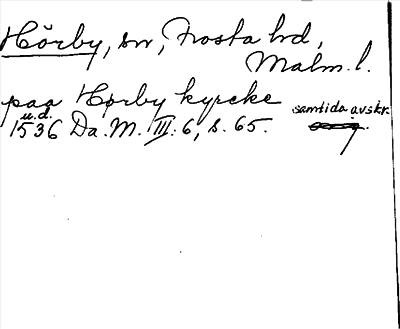 Hörby, sn, Frosta hd,
Malm. l.
paa Hørby kyrcke
u.d. samtida avskr.
1536 Da. M. III: 6, s. 65.